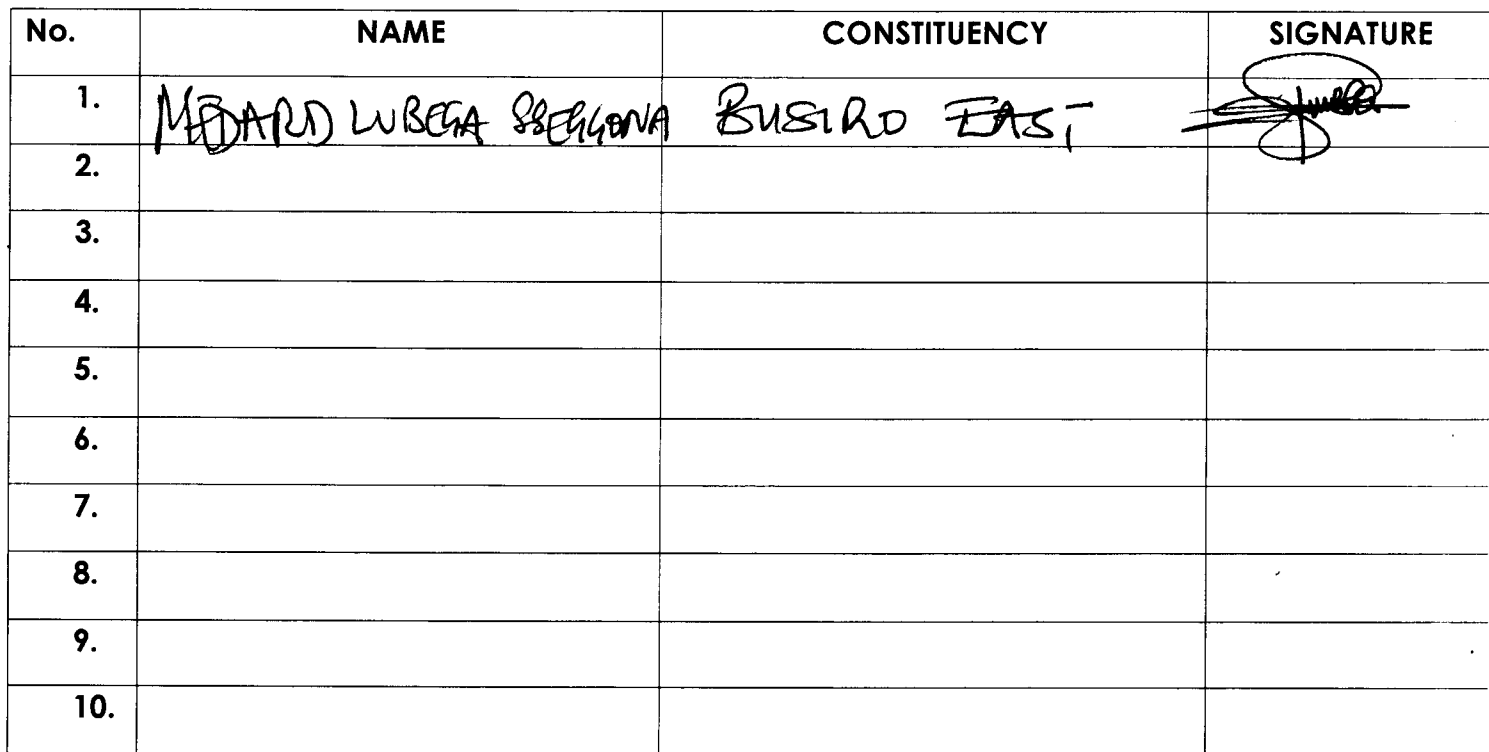 No. NAME CONSTITUENCY SIGNATURE
1. MEDARD LUBEGA SSEGGONA BUSIRO EAST
2.
3.
4.
5.
6.
7.
8.
9.
10.